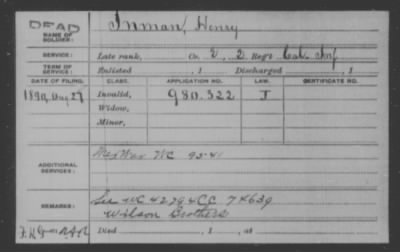 DEAD
NAME OF SOLDIER: Inman, Henry
SERVICE: Late rank, Co. E, 2 Reg't Cal. Inf
TERM OF SERVICE: Enlisted , 1 Discharged , 1
DATE OF FILING. CLASS. APPLICATION NO. LAW. CERTIFICATE NO.
1890, Aug 27 Invalid, 980.322 J
Widow,
Minor,
ADDITIONAL SERVICES: Mex War WC
REMARKS: See WC 42794 CC 74639
Wilson Brothers
Died , 1 , at